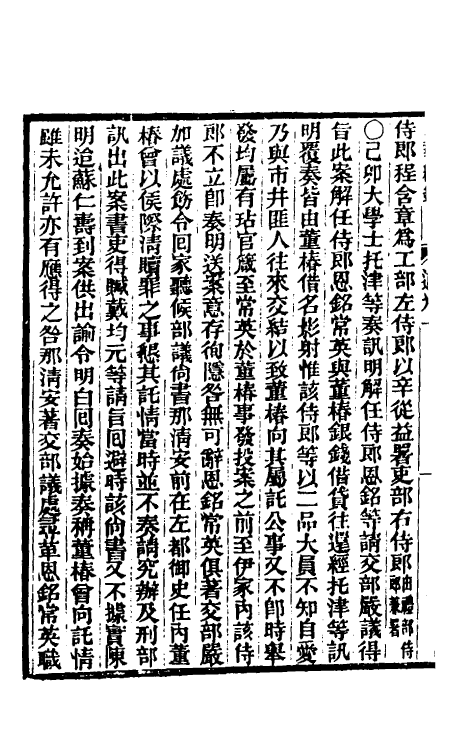 侍郎程含章爲工部左侍郎以辛從益署吏部右侍郎由禮部侍郎兼署
〇己卯大學士托津等奏訊明解任侍郎恩銘等請交部嚴議得
旨此案解任侍郎恩銘常英與董椿銀錢借貸往還經托津等訊
明覆奏皆由董椿借名影射惟該侍郎等以二品大員不知自愛
乃與市井匪人往來交結以致董椿向其屬託公事又不卽時舉
發均屬有玷官箴至常英於董椿事發投案之前至伊家內該侍
郎不立卽奏明送案意存徇隱咎無可辭恩銘常英俱著交部嚴
加議處飭令回家聽候部議尙書那淸安前在左都御史任內董
椿曾以侯際淸贖罪之事懇其託情當時並不奏請究辦及刑部
訊出此案書吏得贓戴均元等請旨回避時該尙書又不據實陳
明迨蘇仁壽到案供出諭令明白回奏始據奏稱董椿曾向託情
雖未允許亦有應得之咎那淸安著交部議處尋革恩銘常英職